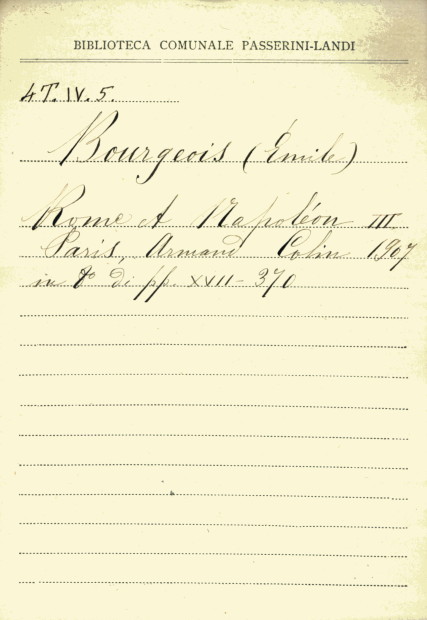 BIBLIOTECA COMUNALE PASSERINI-LANDI
4T. IV. 5.
Bourgeois (Émile)
Rome et Napoléon III.
Paris, Armand Colin 1907
in 8° di pp. XVII - 370